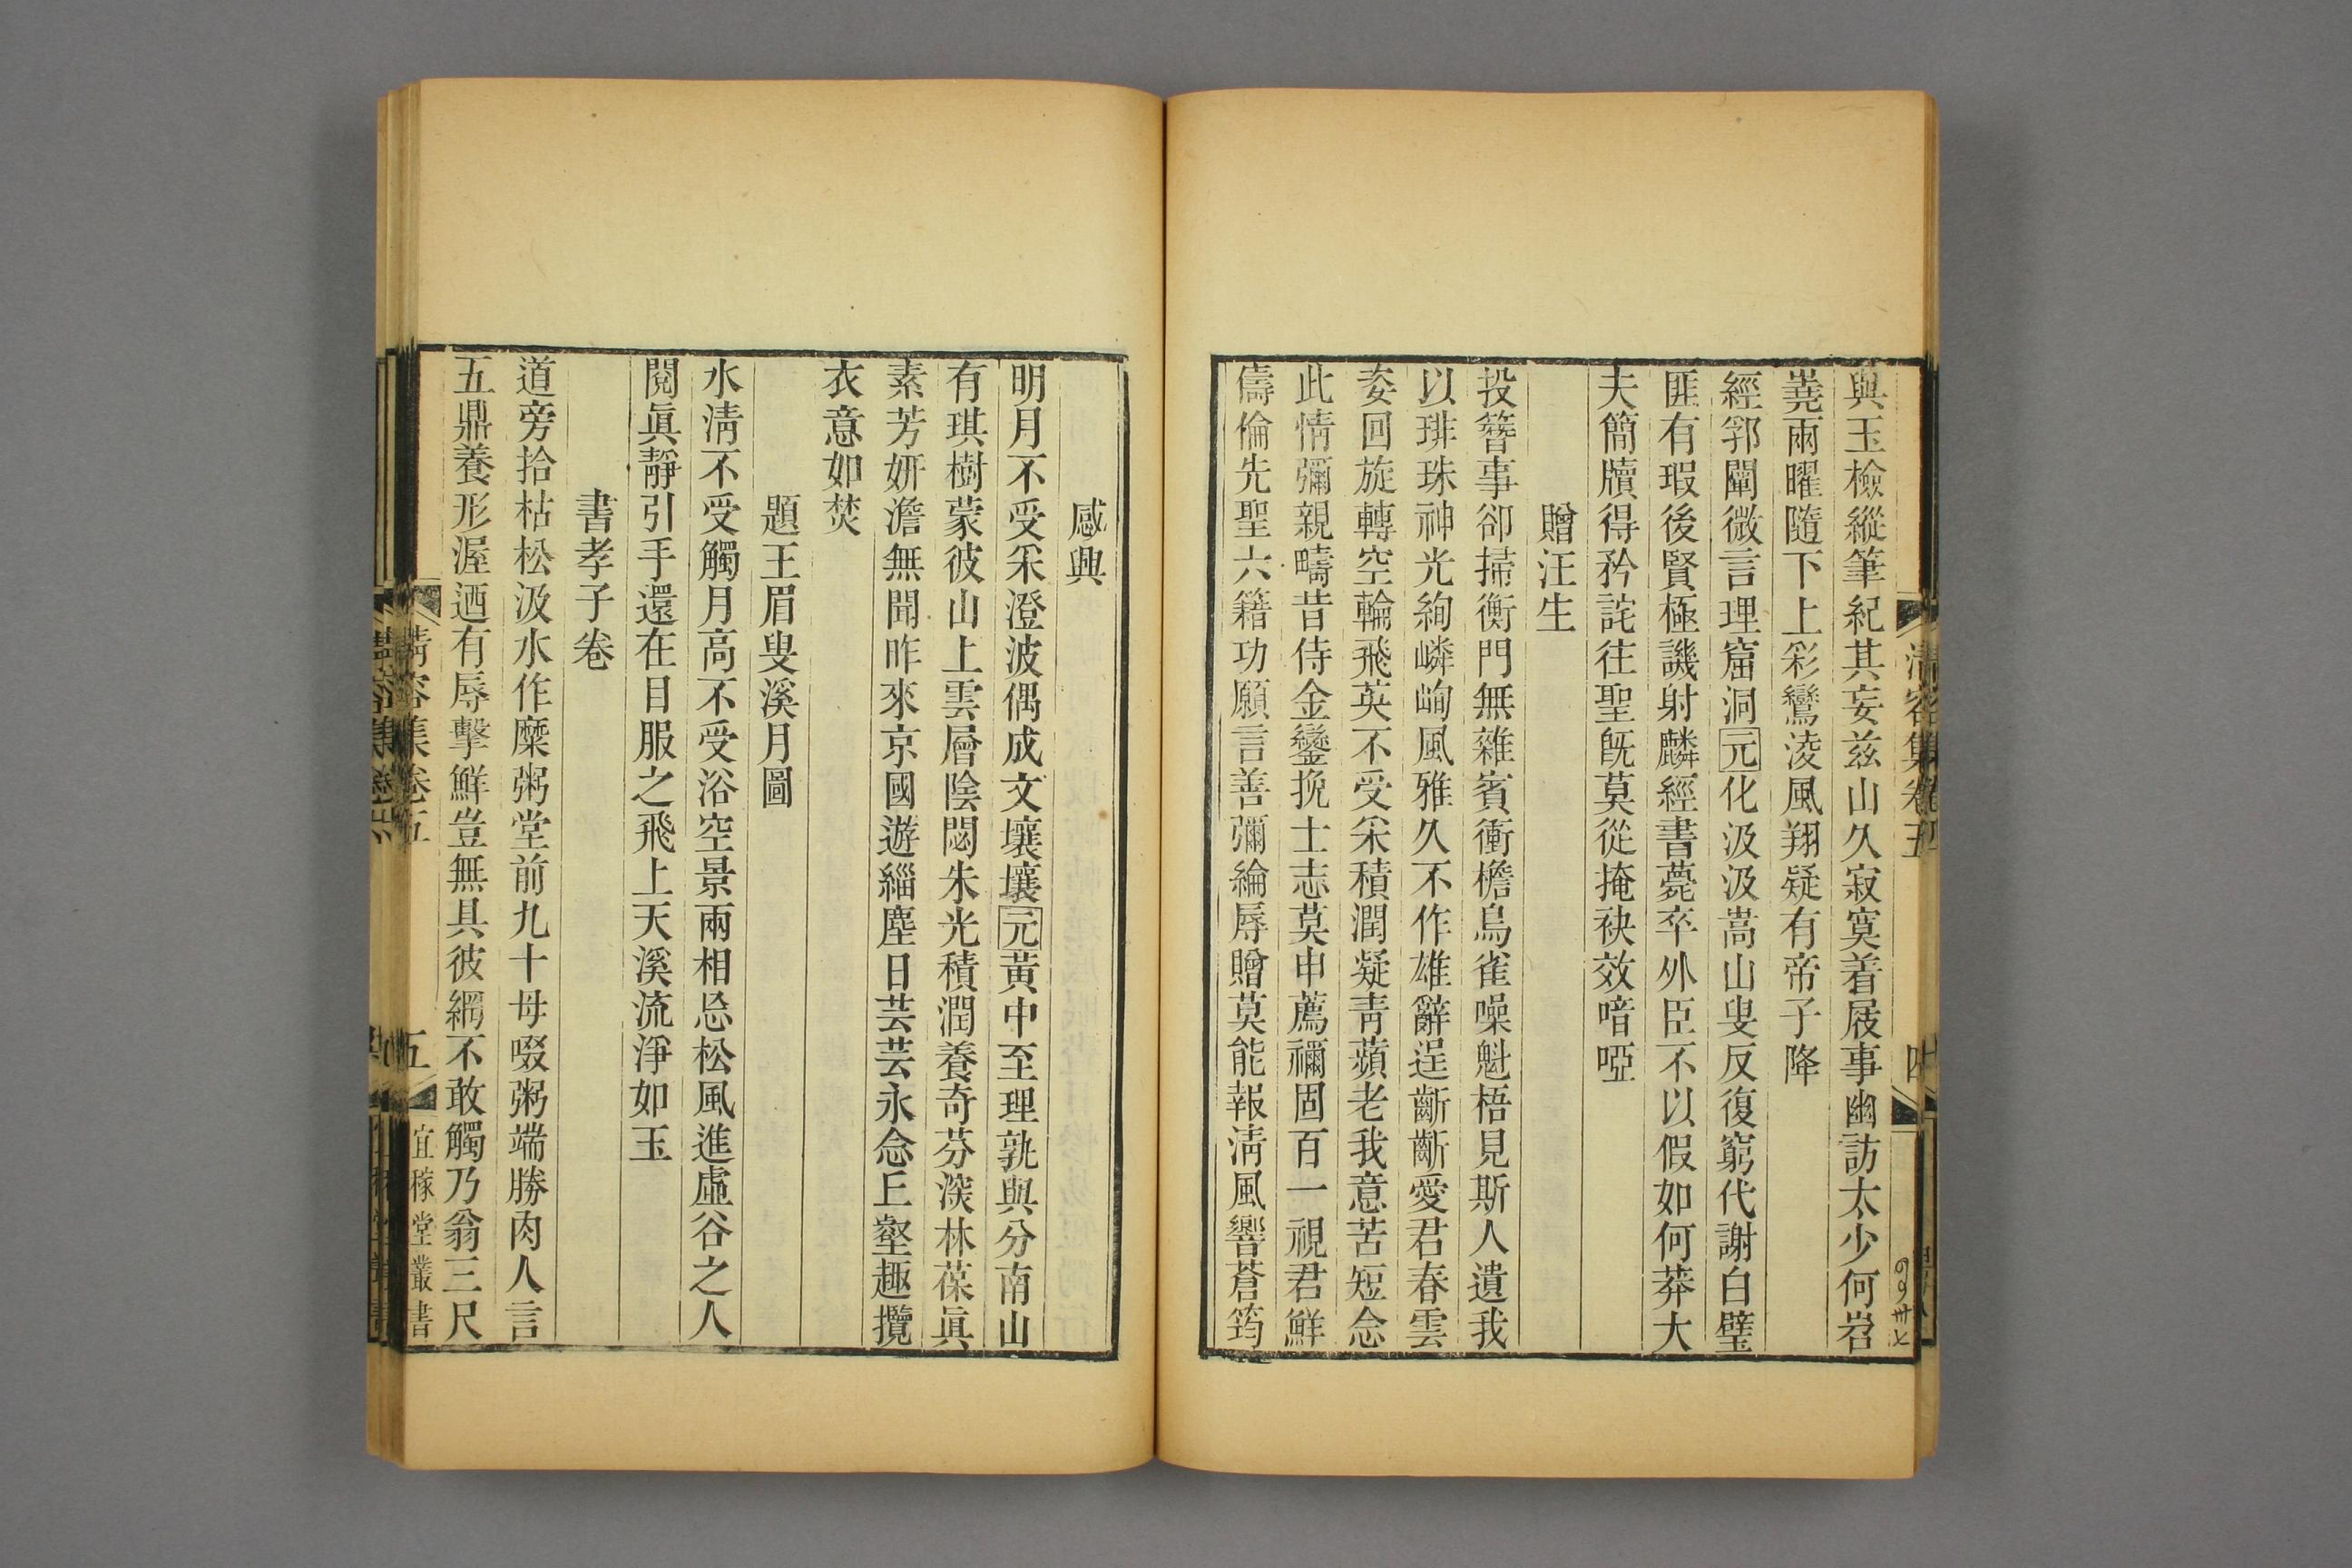 與玉檢縱筆紀其妄茲山久寂寞着屐事幽訪太少何岧
嶤兩曜隨下上彩鸞淩風翔疑有帝子降
經郛闡微言理窟洞元化汲汲嵩山叟反復窮代謝白璧
匪有瑕後賢極譏射麟經書薨卒外臣不以假如何莽大
夫簡牘得矜詫往聖旣莫從掩袂效喑啞
贈汪生
投簪事卻掃衡門無雜賓衝檐烏雀噪魁梧見斯人遺我
以琲珠神光絢嶙峋風雅久不作雄辭逞齗齗愛君春雲
姿回旋轉空輪飛英不受采積潤凝靑蘋老我意苦短念
此情彌親疇昔侍金鑾挽士志莫申薦禰固百一視君鮮
儔倫先聖六籍功願言善彌綸辱贈莫能報淸風響蒼筠
清容集卷五
四
感興
明月不受采澄波偶成文壤壤元黃中至理孰與分南山
有琪樹蒙彼山上雲層陰閟朱光積潤養奇芬深林葆眞
素芳妍澹無聞昨來京國遊緇塵日芸芸永念丘壑趣攬
衣意如焚
題王眉叟溪月圖
水淸不受觸月高不受浴空景兩相忘松風進虛谷之人
閱眞靜引手還在目服之飛上天溪流淨如玉
書孝子卷
道旁拾枯松汲水作糜粥堂前九十母啜粥端勝肉人言
五鼎養形渥迺有辱擊鮮豈無具彼綱不敢觸乃翁三尺
清容集卷五
五
宜稼堂叢書